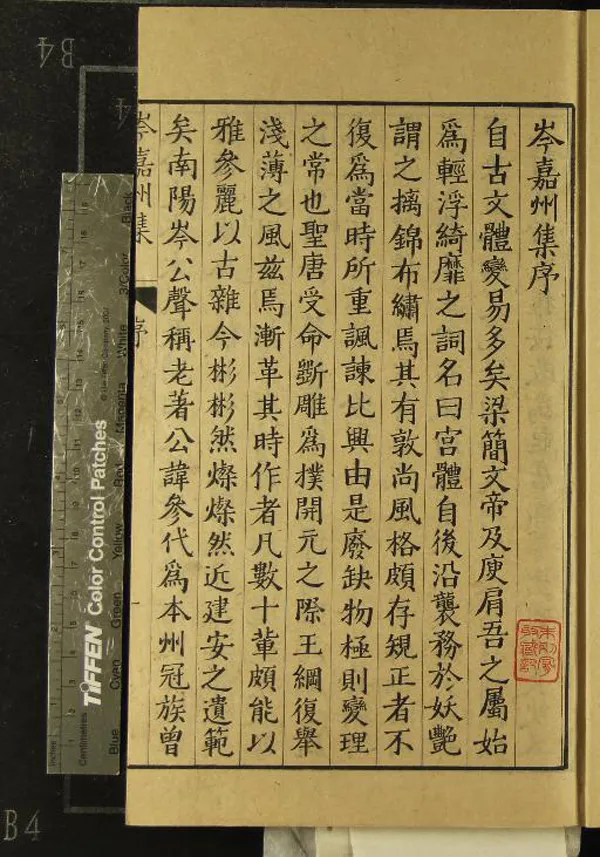 岑嘉州集序
自古文體變易多矣梁簡文帝及庾肩吾之屬始
爲輕浮綺靡之詞名曰宮體自後沿襲務於妖艷
謂之摛錦布繡焉其有敦尚風格頗存規正者不
復爲當時所重諷諫比興由是廢缺物極則變理
之常也聖唐受命斲雕爲撲開元之際王綱復舉
淺薄之風茲焉漸革其時作者凡數十軰頗能以
雅參麗以古雜今彬彬然燦燦然近建安之遺範
矣南陽岑公聲稱老著公諱參代爲本州冠族曾
岑嘉州集 序
B4
4
B4
TIFFEN Color Control Patches
Inches
Centimetres
Blue
Cyan
Green
Yellow
Red
Magenta
White
3/Color
Black